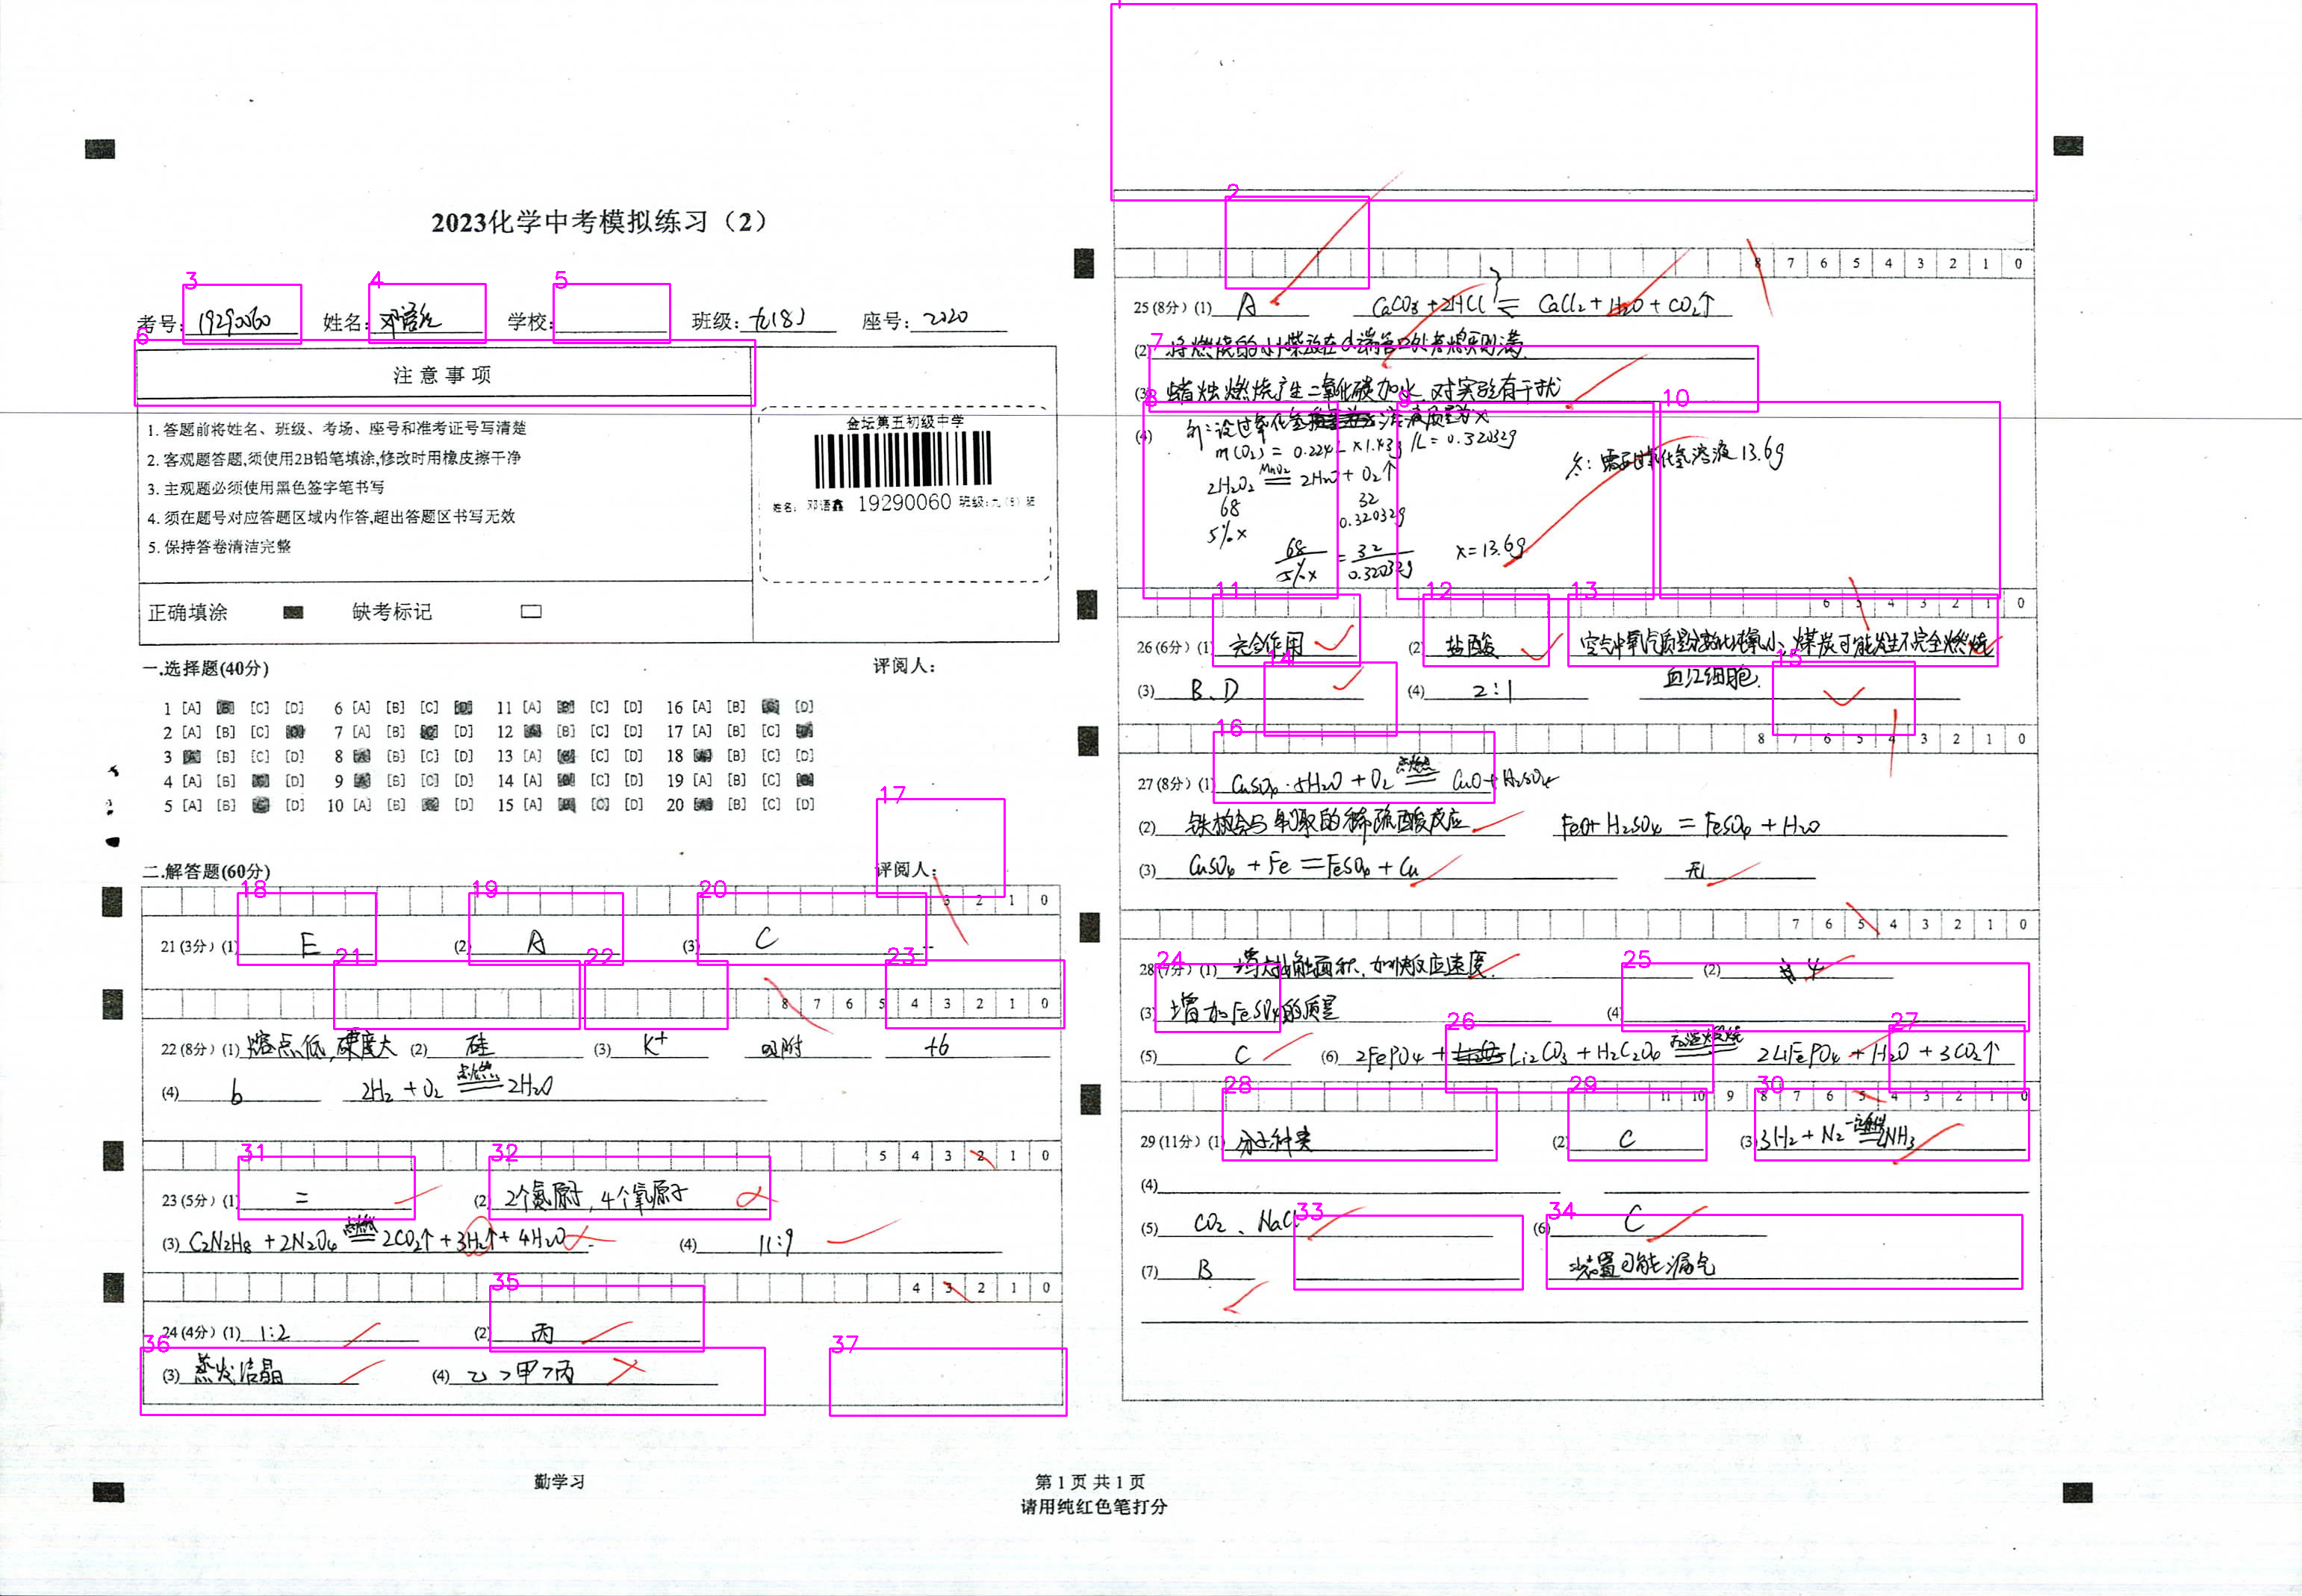 2023化学中考模拟练习（2）
考号: 19290060 姓名: 学校: 班级: 九(8) 座号: 2020
注意事项
1. 答题前将姓名、班级、考场、座号和准考证号写清楚
2. 客观题答题,须使用2B铅笔填涂,修改时用橡皮擦干净
3. 主观题必须使用黑色签字笔书写
4. 须在题号对应答题区域内作答,超出答题区书写无效
5. 保持答卷清洁完整
正确填涂 缺考标记
金坛第五初级中学
姓名: 邓语鑫 19290060 班级:九(8)班
一.选择题(40分) 评阅人:
1 [A] [C] [D] 6 [A] [B] [C] 11 [A] [C] [D] 16 [A] [B] [D]
2 [A] [B] [C] 7 [A] [B] [D] 12 [B] [C] [D] 17 [A] [B] [C]
3 [B] [C] [D] 8 [B] [C] [D] 13 [A] [C] [D] 18 [B] [C] [D]
4 [A] [B] [D] 9 [B] [C] [D] 14 [A] [C] [D] 19 [A] [B] [C]
5 [A] [B] [D] 10 [A] [B] [D] 15 [A] [C] [D] 20 [B] [C] [D]
二.解答题(60分) 评阅人:
3 2 1 0
21(3分) (1) E (2) A (3) C
8 7 6 5 4 3 2 1 0
22(8分) (1) 熔点低,硬度大 (2) 硅 (3) K+ 吸附 +6
(4) b 2H₂ + O₂ 点燃 2H₂O
5 4 3 2 1 0
23(5分) (1) = (2) 2个氮原子,4个氧原子
(3) C₂N₂H₈ + 2N₂O₄ 点燃 2CO₂↑ + 3H₂↑ + 4H₂O (4) 11:9
4 3 2 1 0
24(4分) (1) 1:2 (2) 丙
(3) 蒸发结晶 (4) 乙>甲>丙
8 7 6 5 4 3 2 1 0
25(8分) (1) A CaCO₃ + 2HCl = CaCl₂ + H₂O + CO₂↑
(2) 将燃烧的小木柴放在d端管口处若熄灭则满
(3) 蜡烛燃烧产生二氧化碳加水,对实验有干扰
(4) 解:设过氧化氢溶液质量为x
m(O₂) = 0.224L×1.43g/L = 0.32032g
2H₂O₂ MnO₂ 2H₂O + O₂↑
68 32
5%x 0.32032g
68/5%x = 32/0.32032g x=13.6g
答:需要过氧化氢溶液13.6g
6 5 4 3 2 1 0
26(6分) (1) 光合作用 (2) 盐酸 空气中氧气质量分数比纯氧小、煤炭可能发生不完全燃烧
(3) B、D (4) 2:1 血红细胞
8 7 6 5 4 3 2 1 0
27(8分) (1) CuSO₄·5H₂O + O₂ 点燃 CuO + H₂SO₄
(2) 铁构会与剩余的稀硫酸反应 FeO+H₂SO₄ = FeSO₄ + H₂O
(3) CuSO₄ + Fe = FeSO₄ + Cu 无
7 6 5 4 3 2 1 0
28(7分) (1) 增大接触面积,加快反应速度 (2) 4
(3) 增加FeSO₄的质量 (4)
(5) C (6) 2FePO₄ + Li₂CO₃ + H₂C₂O₄ 高温煅烧 2LiFePO₄ + H₂O + 3CO₂↑
11 10 9 8 7 6 5 4 3 2 1 0
29(11分) (1) 分子种类 (2) C (3) 3H₂ + N₂ 一定条件 2NH₃
(4)
(5) CO₂、NaCl (6) C
(7) B 装置可能漏气
勤学习 第1页 共1页
请用纯红色笔打分
1
2
3
4
5
6
7
8
9
10
11
12
13
14
15
16
17
18
19
20
21
22
23
24
25
26
27
28
29
30
31
32
33
34
35
36
37